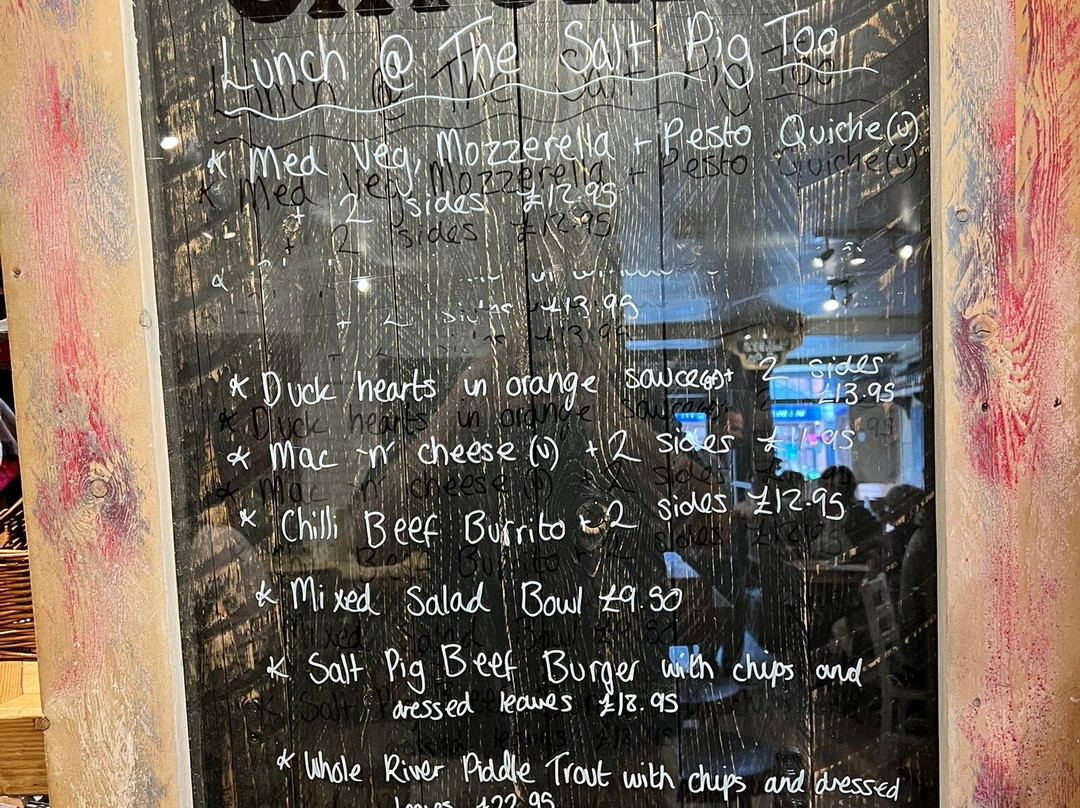 Lunch @ The Salt Pig Too
* Med Veg, Mozzerella + Pesto Quiche (v)
+ 2 sides £12.95
£13.95
* Duck hearts in orange sauce (GF) + 2 sides
£13.95
* Mac 'n' cheese (v) + 2 sides £11.95
* Chilli Beef Burrito + 2 sides £12.95
* Mixed Salad Bowl £9.50
* Salt Pig Beef Burger with chips and
dressed leaves £18.95
* Whole River Piddle Trout with chips and dressed
leaves £22.95